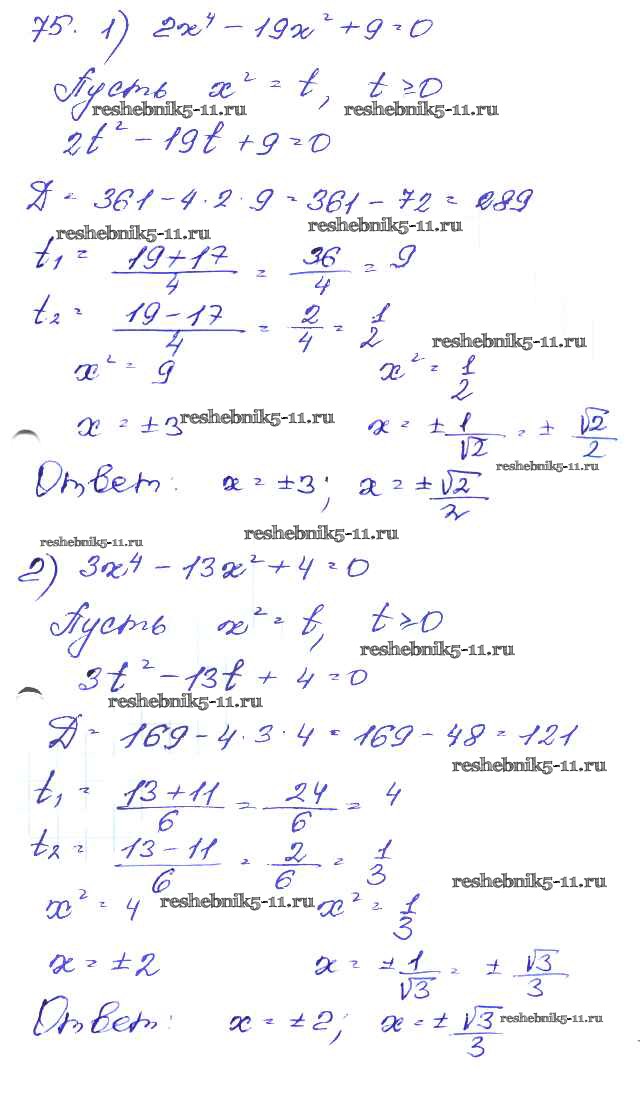 75. 1) 2x⁴ - 19x² + 9 = 0
Пусть x² = t, t ≥ 0
reshebnik5-11.ru reshebnik5-11.ru
2t² - 19t + 9 = 0
Д = 361 - 4 · 2 · 9 = 361 - 72 = 289
reshebnik5-11.ru reshebnik5-11.ru
t₁ = (19 + 17)/4 = 36/4 = 9
t₂ = (19 - 17)/4 = 2/4 = 1/2
reshebnik5-11.ru
x² = 9 x² = 1/2
x = ±3 reshebnik5-11.ru x = ± 1/√2 = ± √2/2
reshebnik5-11.ru
Ответ: x = ±3; x = ± √2/2
reshebnik5-11.ru reshebnik5-11.ru
2) 3x⁴ - 13x² + 4 = 0
Пусть x² = t, t ≥ 0
reshebnik5-11.ru
3t² - 13t + 4 = 0
reshebnik5-11.ru
Д = 169 - 4 · 3 · 4 = 169 - 48 = 121
reshebnik5-11.ru
t₁ = (13 + 11)/6 = 24/6 = 4
t₂ = (13 - 11)/6 = 2/6 = 1/3
reshebnik5-11.ru
x² = 4 reshebnik5-11.ru x² = 1/3
x = ±2 x = ± 1/√3 = ± √3/3
Ответ: x = ±2; x = ± √3/3 reshebnik5-11.ru